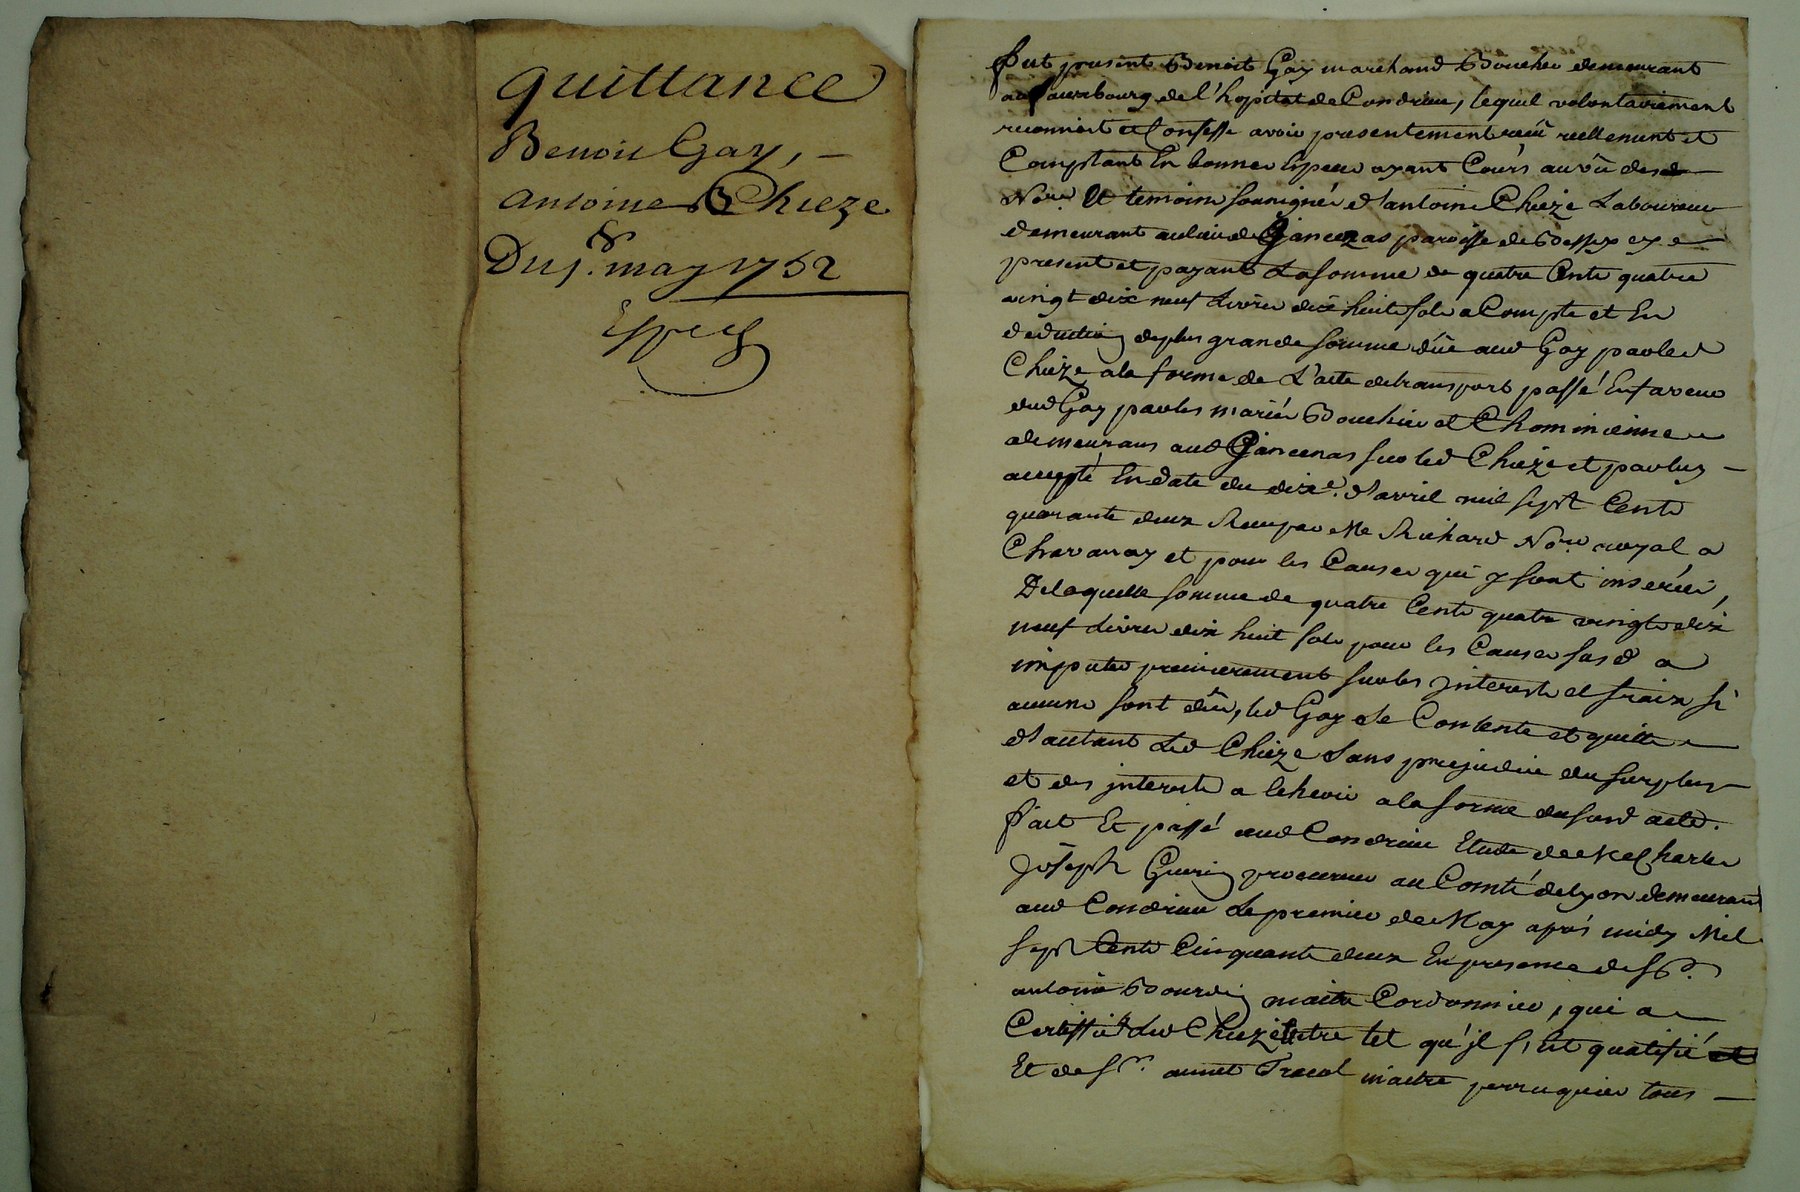 quittance
Benoit Gay, -
antoine Chieze
Du 1er. may 1752
fut present Benoit Gay marchand Boucher demeurant
au fauxbourg de l'hopital de Condrieu, lequel volontairement
reconnoit et Confesse avoir presentement reçû reellement et
Comptant En bonnes Especes ayant Cours au vû desd
Nore. Et temoins soussignés d'antoine Chieze Laboureur
demeurant au lieu de Jancenas paroisse de Bessey
present et payant La somme de quatre Cents quatre
vingt dix neuf Livres dix huit sols a Compte et En
deduction de plus grande somme dûe aud Gay par led
Chieze a la forme de L'acte de transport passé En faveur
dud Gay par les mariés Bouchier et Chominienne
demeurans aud Jancenas sur led Chieze et par luy -
accepté En date du dixe. d'avril mil sept Cents
quarante deux Reçu par Me Richard Nore royal a
Chavanay et pour les Causes qui y sont inserées,
De laquelle somme de quatre Cents quatre vingts dix
neuf Livres dix huit sols pour les Causes susd a
imputer premierement sur les interests et fraix si
aucuns sont dûs, led Gay se Contente et quitte
d'autant Led Chieze sans prejudice du surplus
et des interests a Echevoir a la forme du susd acte.
fait Et passé aud Condrieu Etude de Me Charles
Joseph Guerin procureur au Comté de Lyon demeurant
aud Condrieu Le premier de May aprés midy Mil
sept Cents Cinquante deux En presence de sr.
antoine Bourdin maitre Cordonnier, qui a
Certiffié led Chieze Etre tel qu'il s'est qualifié
Et de sr. annet Tracol maitre perruquier tous -